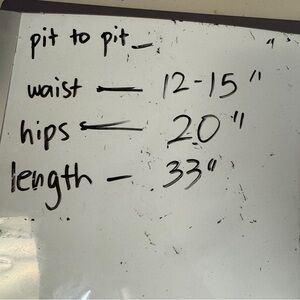 pit to pit —
waist — 12-15"
hips — 20"
length — 33"